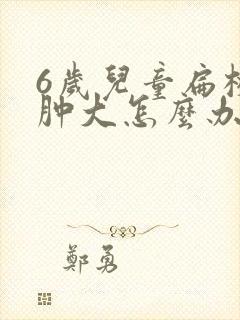 6歲兒童扁
肿大怎麼办
鄭勇